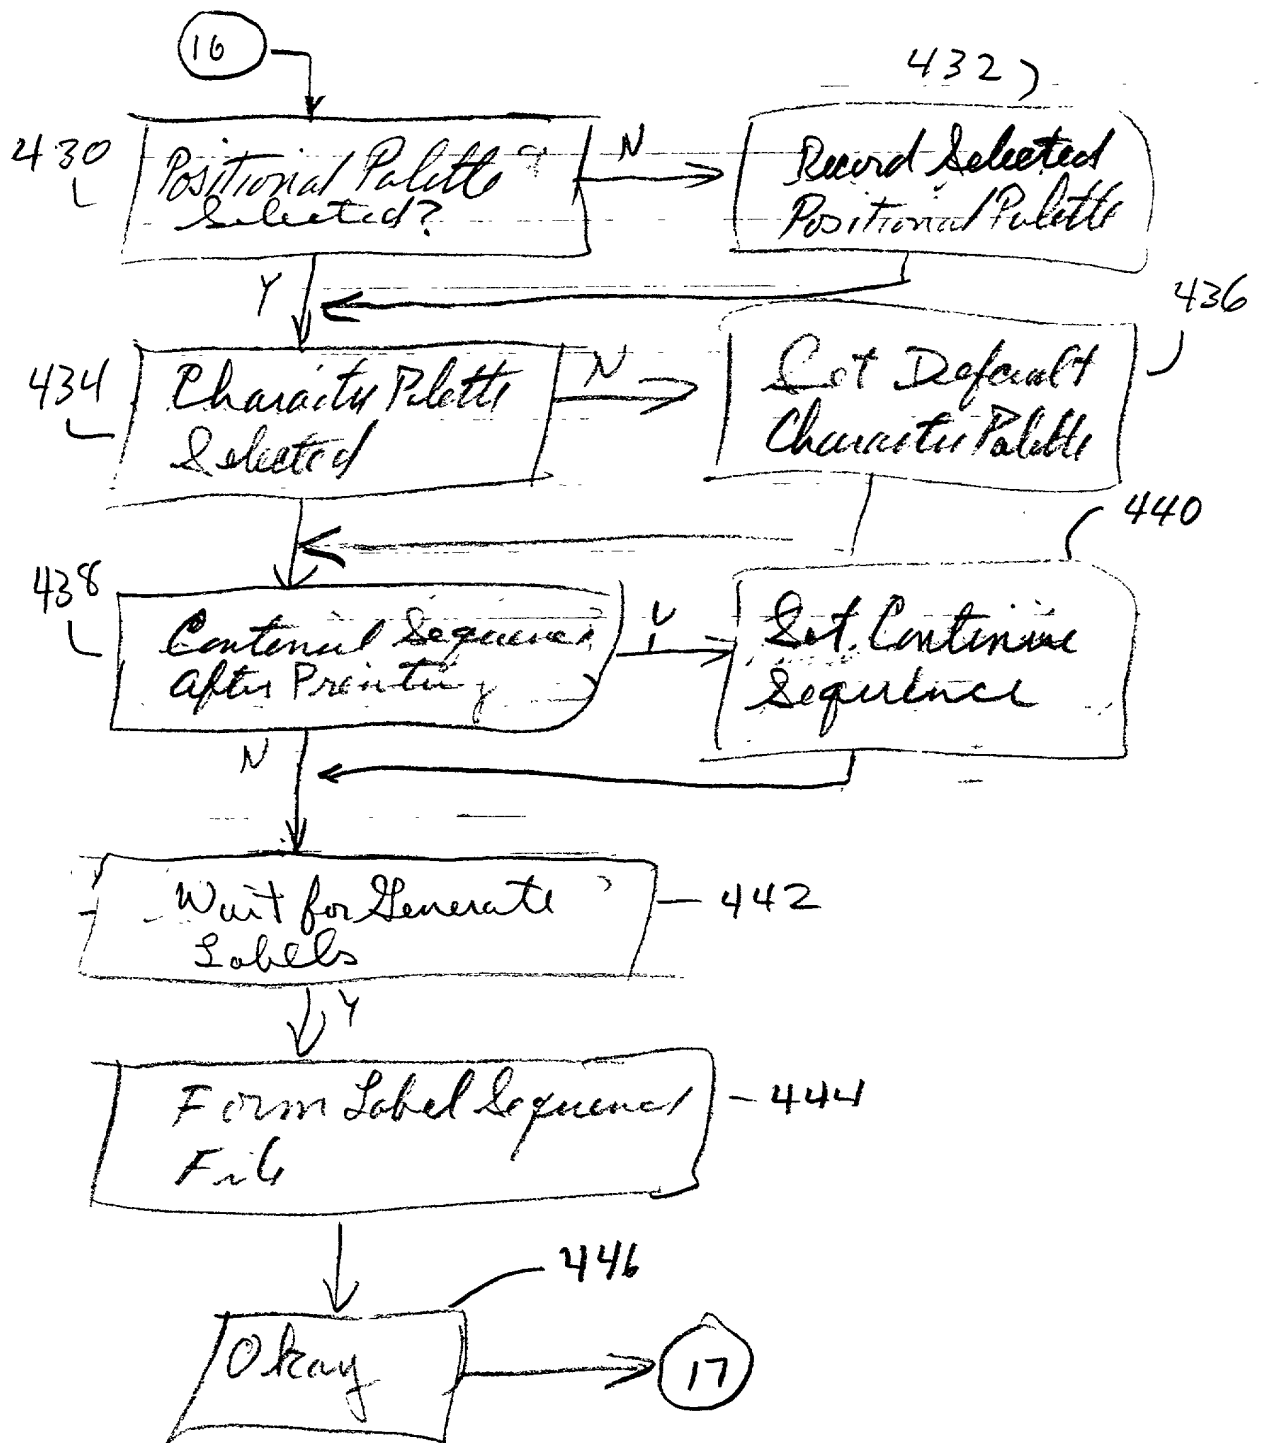 16
432
430
Positional Palette
Selected?
N
Record Selected
Positional Palette
Y
436
434
Character Palette
Selected
N
Set Default
Character Palette
440
438
Sequence
After Printing
Set Continue
Sequence
N
Wait for Generate
Labels
442
Y
Form Label Sequence
File
444
446
Okay
17